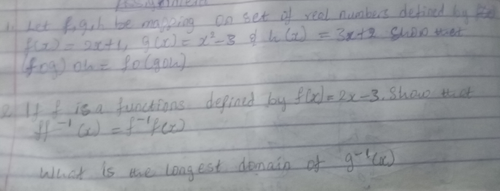 Assignment
1. Let f, g, h be mapping on set of real numbers defined by
f(x) = 2x+1, g(x) = x²-3 & h(x) = 3x+2 Show that
(fog)oh = fo(goh)
2. If f is a functions defined by f(x) = 2x-3. Show that
ff⁻¹(x) = f⁻¹f(x)
What is the longest domain of g⁻¹(x)